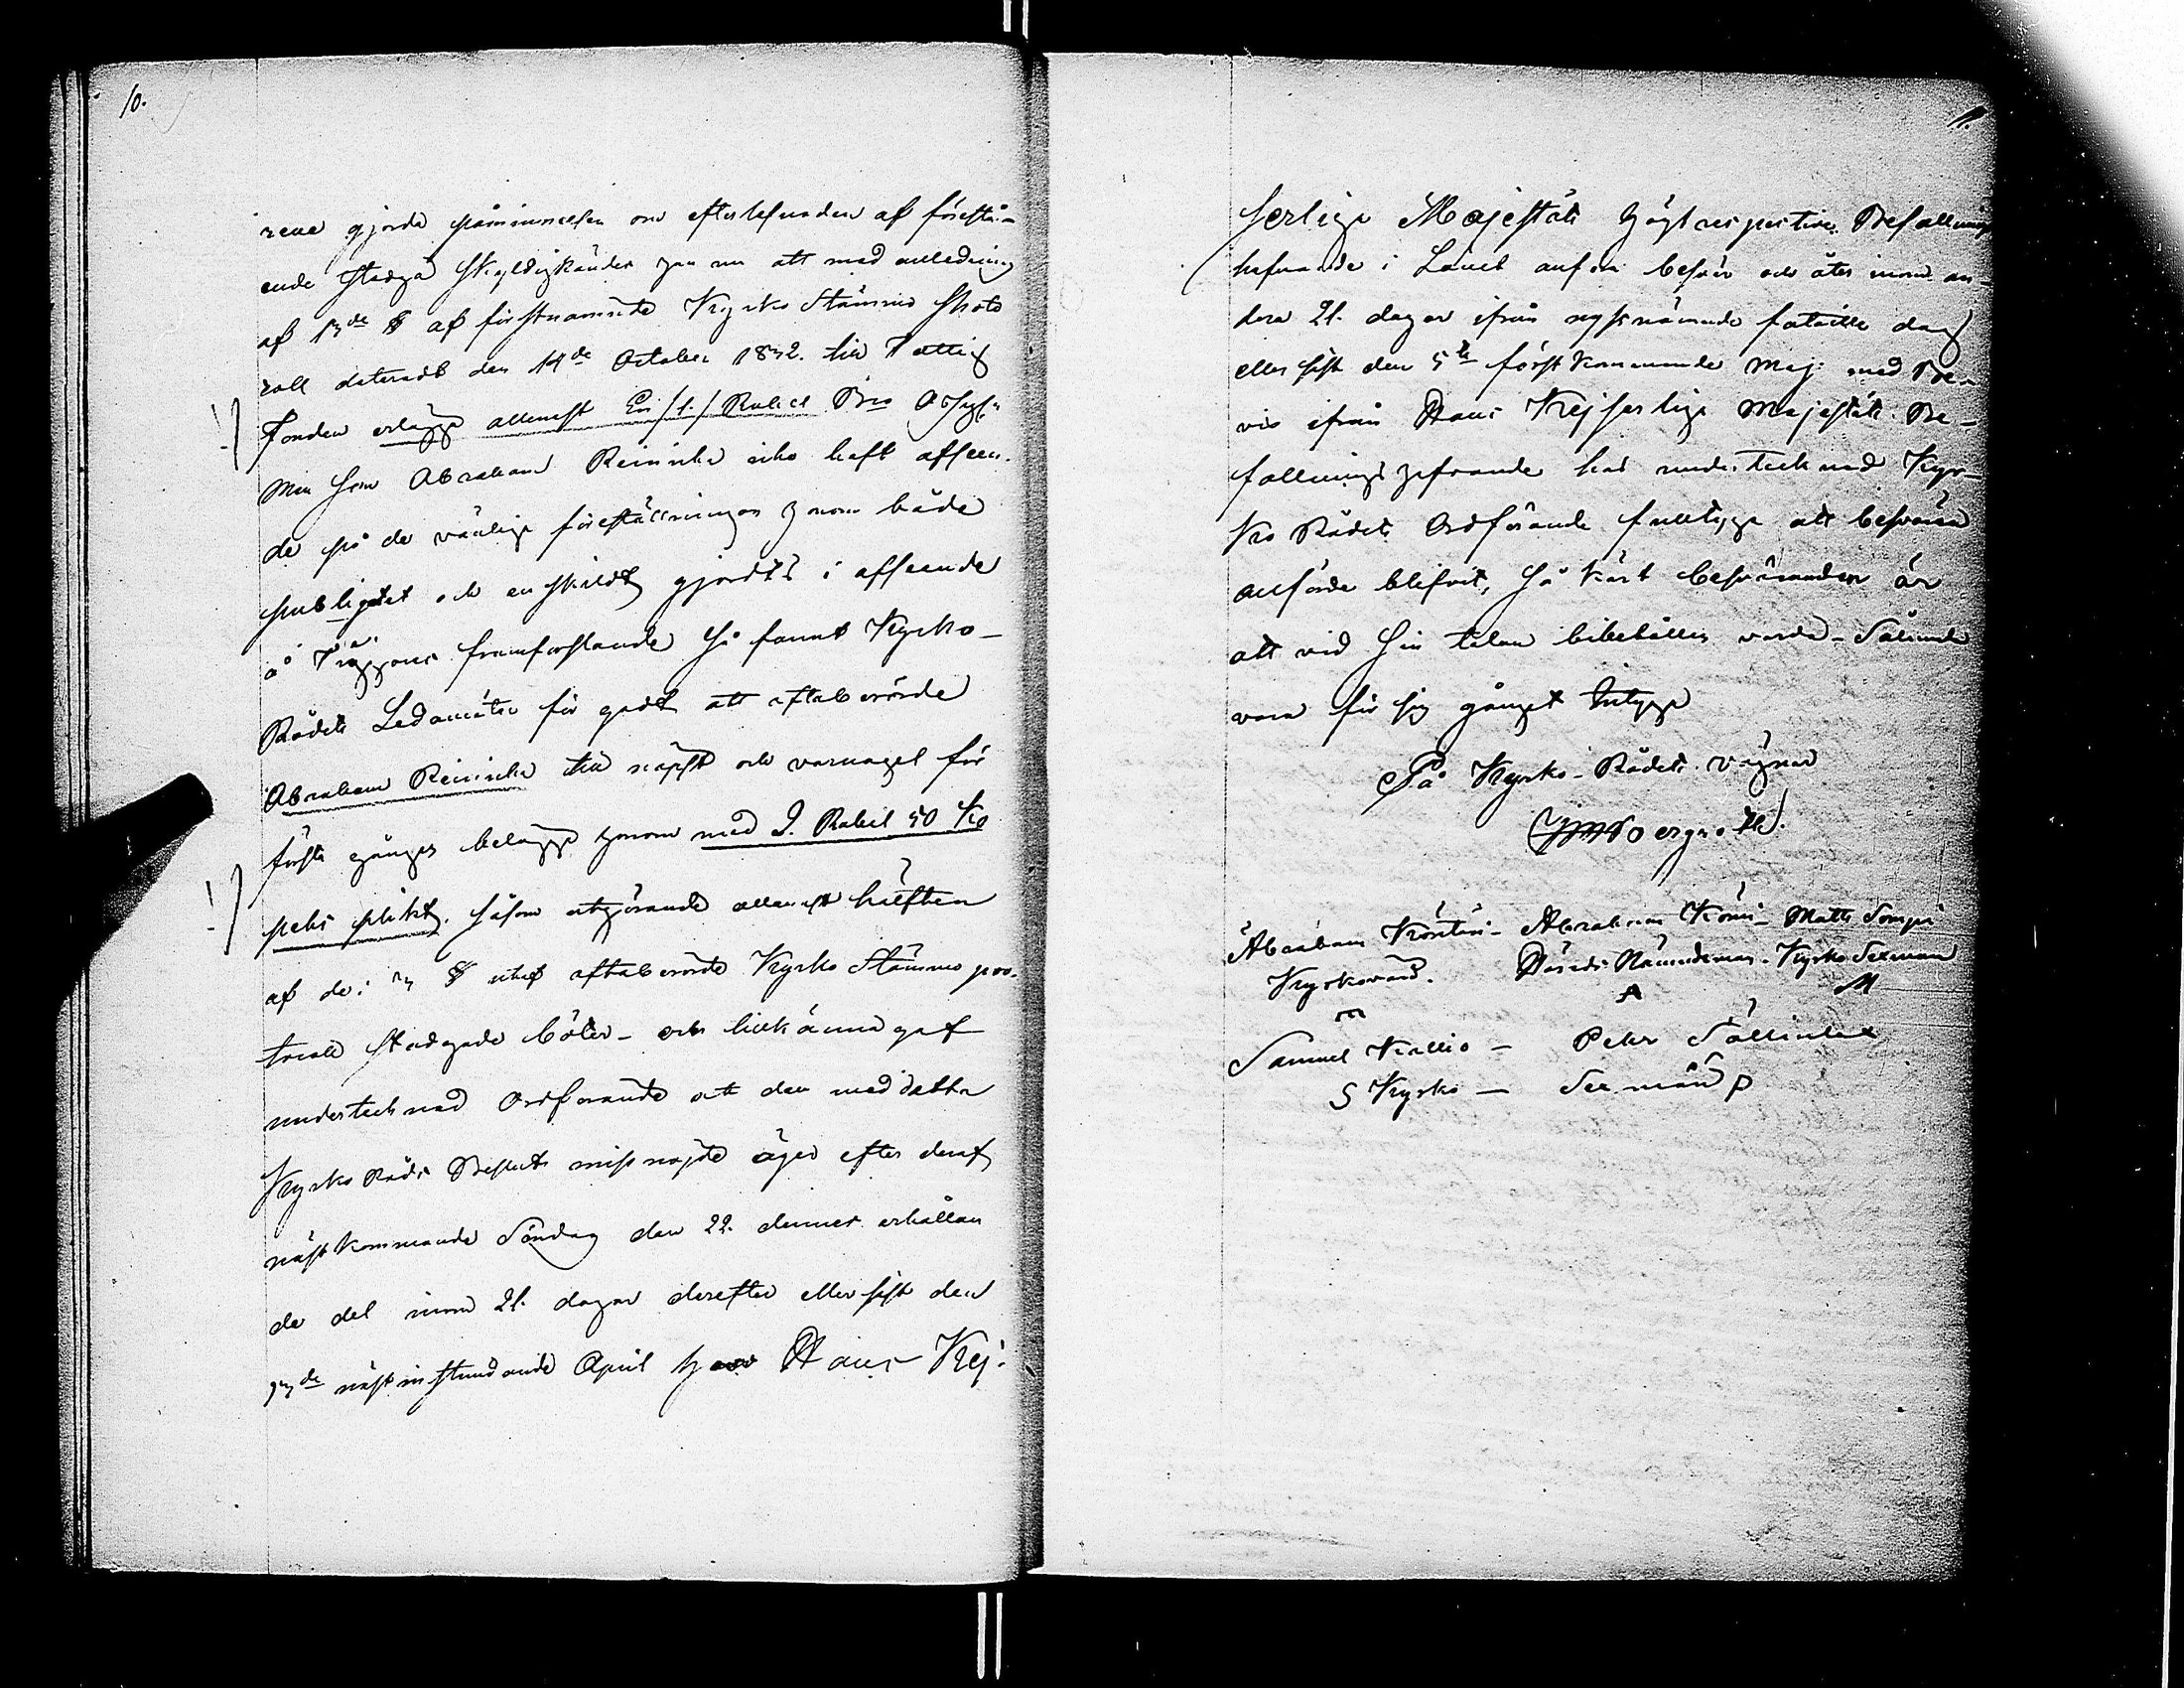 10.
rena gjorda påminnelsen om efterlefnaden af föreståen
ende stadga skyldigkänder han nu att med anledning
af 13de § af förstnämnde Kyrko Stämmo Proto
coll dateradt den 14de October 1832. till Fattig
Fonden erlägga allenast En /1./ Rubel Bco Assgs:
Men som Abraham Reinicka icke haft afseen-
de på de vänliga föreställningar honom både
publiqt och enskildt gjordts i afseende
å framfarstande så fannt Kyrko-
Rådets Ledamöter för godt att oftaberörde
Abraham Reinicka till näpst och varnagel för
första gången belägga honom med 2. Rubel 50 Ko
peks plikt, såsom utgörande allenast hälften
af de i § utaf oftaberörde Kyrko Stämmo pro-
tocoll stadgade böter - och tillkänna gaf
undertecknad Ordförande att den med detta
Kyrko Råds Beslut missnöjde äger efter deraf
nästkommande Söndag den 22. dennes erhållan
de del inom 21. dagar derefter eller sist den
13de nästinstundande April hos Hans Kej-
11.
serliga Majestäts Högtrespective Befallnings
hafvande i Länet anföra besvär och åter inom an-
dra 21. dagar ifrån nyssnämnde fatalie dag
eller sist den 5te först kommande Maj med Be-
vis ifrån Hans Kejserliga Majestäts Be-
fallningshafvande hos undertecknad Kyr-
ko Rådets Ordförande fulltyga att besvären
anförda blifvit, så kärt besväranden är
att vid sin talan bibehållen varda - Sålunda
vara för sig gånget Intyga
På Kyrko-Rådets vägnar
Abraham Köntti - Abraham Köni - Matts Sompi
Kyrkovärd. Härads Nämndeman - Kyrko Sexman
A M
Samuel Kallio - Peter Sällinen
S Kyrko - Sexmän P